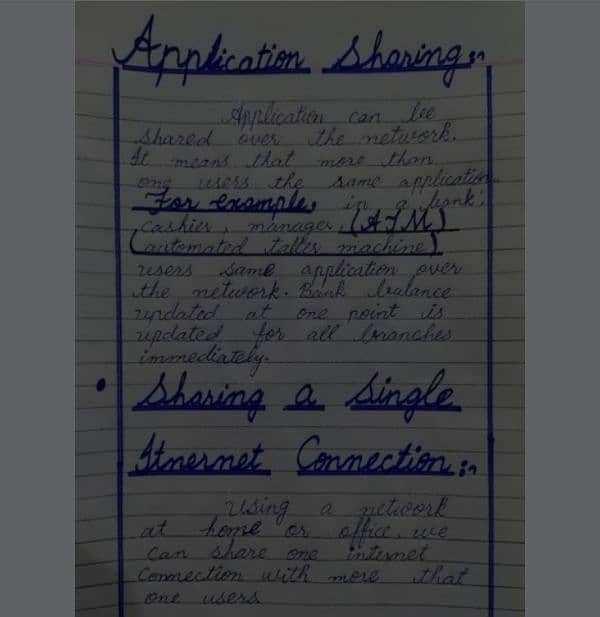 Application Sharing:~
Application can be
shared over the network.
It means that more than
one users the same application
For example, in a bank,
cashier, manager (ATM)
(automated taller machine)
users same application over
the network. Bank balance
updated at one point is
updated for all branches
immediately.
• Sharing a Single
Itnernet Connection:~
Using a network
at home or office, we
can share one internet
Connection with more that
one users